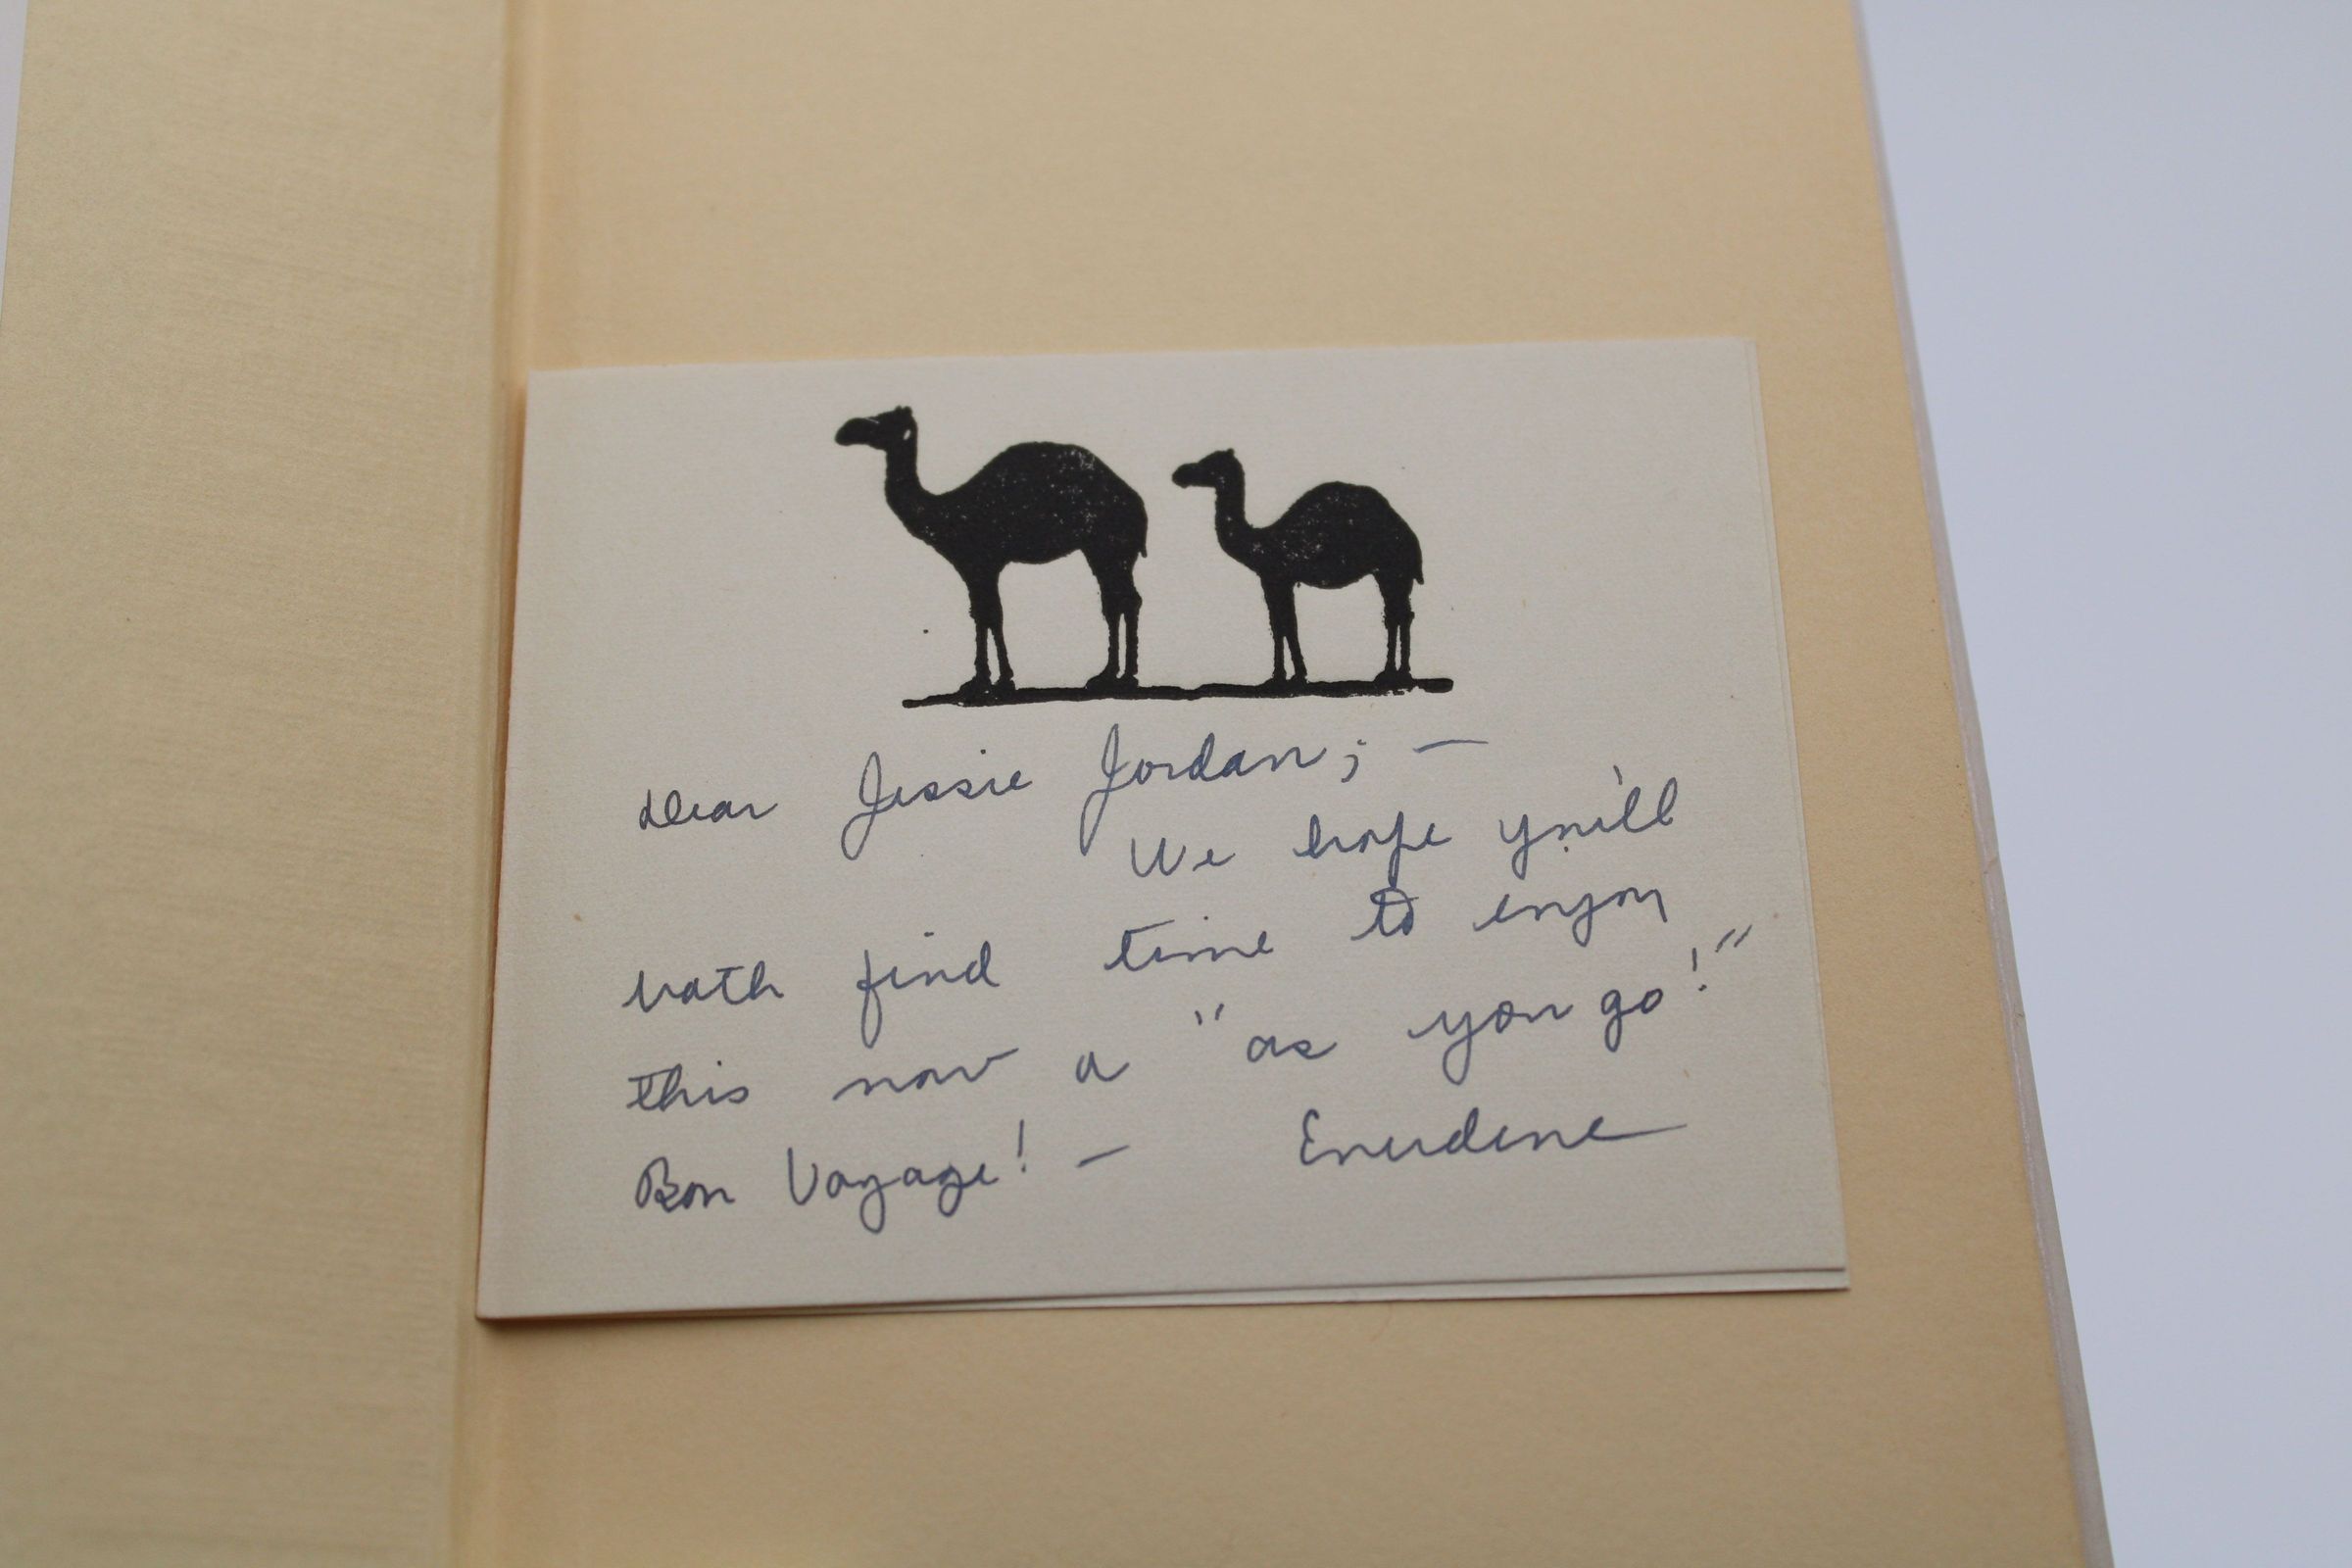 Dear Jessie Jordan; —
We hope you'll
both find time to enjoy
this now a "as you go!"
Bon Voyage! —